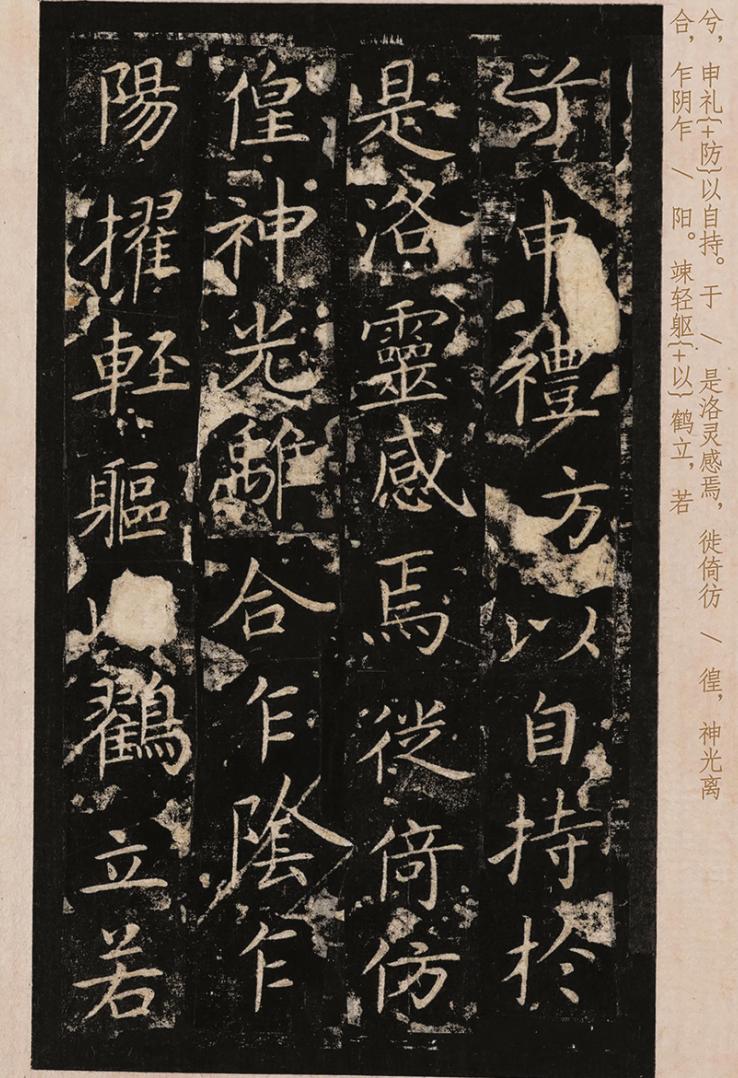 兮，申礼{+防}以自持。于 / 是洛灵感焉，徙倚彷 / 徨，神光离
合，乍阴乍 / 阳。竦轻躯{+以}鹤立，若
申禮方以自持於
是洛靈感焉徙倚仿
偟神光離合乍陰乍
陽擢輕軀鶴立若